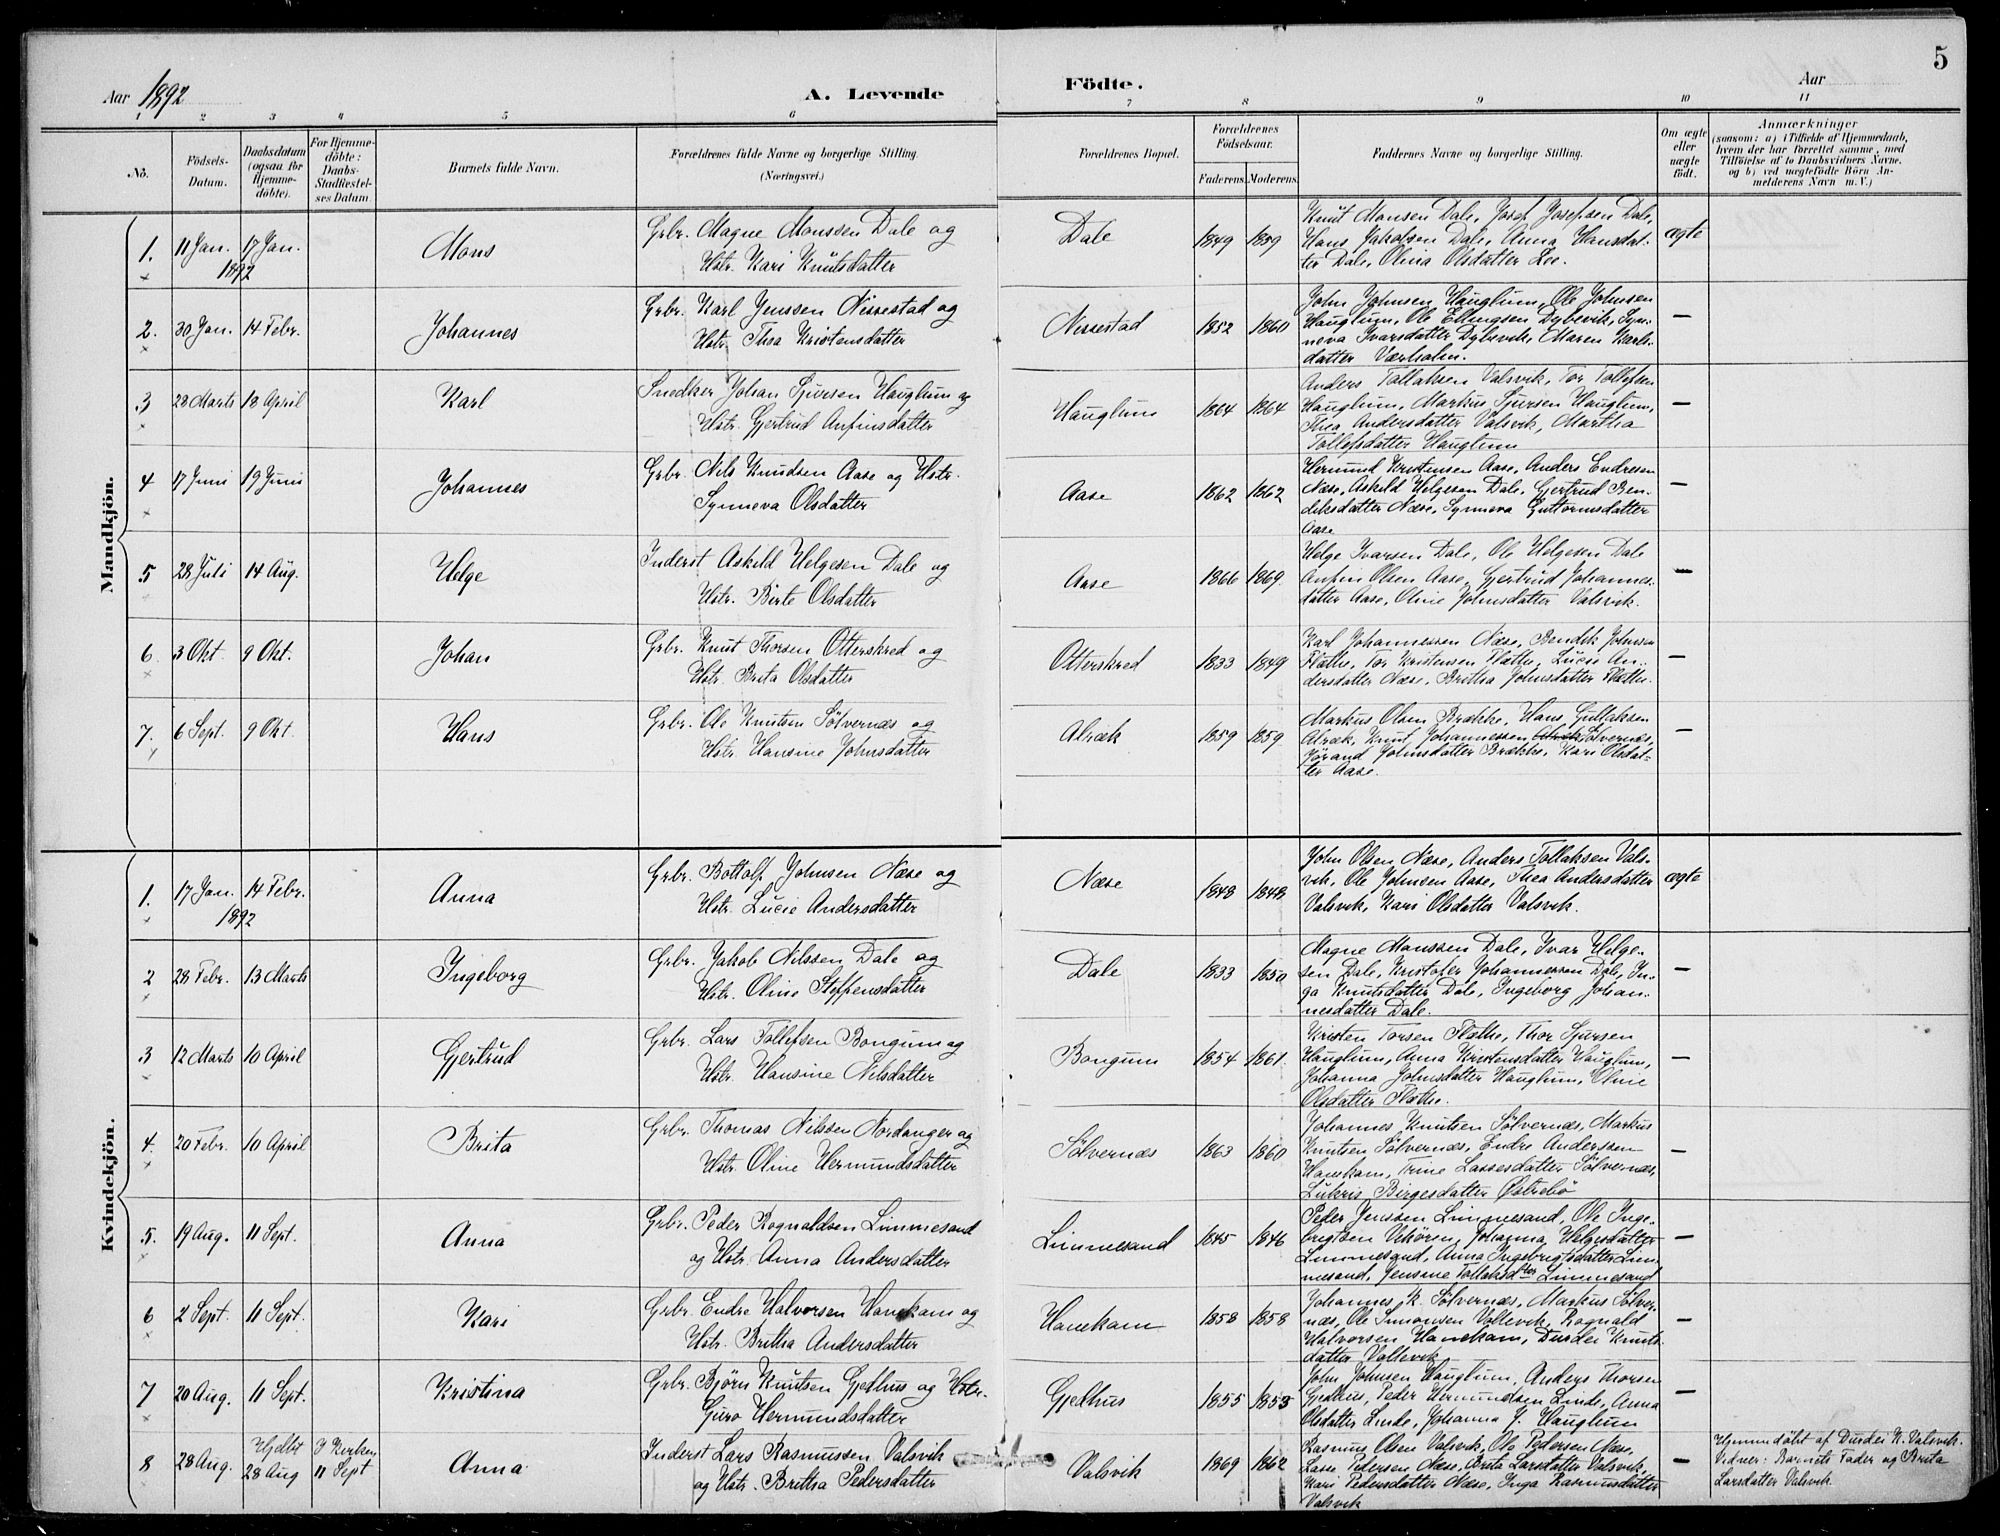 5
Aar 1892
A. Levende Födte.
Aar
1 2 3 4 5 6 7 8 9 10 11
No.
Födsels-
Datum.
Daabsdatum
(ogsaa for
Hjemme-
döbte).
For Hjemme-
döbte:
Daabs-
Stadfæstel-
ses Datum
Barnets fulde Navn.
Forældrenes fulde Navne og borgerlige Stilling.
(Næringsvei.)
Forældrenes Bopæl.
Forældrenes
Födselsaar.
Faderens Moderens
Faddernes Navne og borgerlige Stilling.
Om ægte
eller
uægte
födt.
Anmærkninger
(saasom: a) i Tilfælde af Hjemmedaab,
hvem der har forrettet samme, med
Tilföielse af to Daabsvidners Navne.
og b) ved uægtefödte Börn An-
melderens Navn m. V.)
Mandkjön.
1. 11 Jan. 17 Jan.
1892
Mons
Grbr. Magne Monssen Dale og
Hstr. Kari Knutsdatter
Dale
1849 1859
Knut Monsen Dale, Josef Josefsen Dale,
Hans Jakobsen Dale, Anna Hansdat-
ter Dale, Olina Olsdatter Lee.
ægte
2. 30 Jan. 14 Febr.
Johannes
Grbr. Karl Jenssen Nissestad og
Hstr. Thea Kristensdatter
Nessestad
1852 1860
John Johnsen Hauglum, Ole Johnsen
Hauglum, Ole Ellingsen Dybevik, Syn-
neva Ivarsdatter Dybevik, Maren Karls-
datter Værholm.
—
3 28 Marts 18 April
Karl
Snedker Johan Sjursen Hauglum og
Hstr. Gjertrud Anfinsdatter
Hauglum
1864 1864
Anders Tollaksen Valsvik, Tor Tollefsen
Hauglum, Markus Sjursen Hauglum,
Thea Andersdatter Valsvik, Martha
Tollefsdatter Hauglum
—
4 17 Juni 19 Juni
Johannes
Grbr. Nils Knudsen Aase og Hstr.
Synneva Olsdatter
Aase
1862 1862
Hermund Kristensen Aase, Anders Endresen
Næse, Askild Helgesen Dale, Gjertrud Ben-
diksdatter Næse, Synneva Guttormsdatter
Aase
—
5 28 Juli 14 Aug.
Helge
Inderst Askild Helgesen Dale og
Hstr. Birte Olsdatter
Aase
1866 1869.
Helge Ivarsen Dale, Ole Helgesen Dale
Anfin Olsen Aase, Gjertrud Johannes-
datter Aase, Oline Johnsdatter Valsvik.
—
6 3 Okt 9 Okt.
Johan
Grbr. Knut Thorsen Otterskred og
Hstr. Brita Olsdatter
Otterskred
1833 1849
Karl Johannessen Næse, Bendik Johnsen
Flæthe, Tor Kristensen Flæthe, Lucie An-
dersdatter Næse, Brittha Johnsdatter Flæthe.
—
7. 6 Sept. 9 Okt.
Hans
Grbr. Ole Knutsen Sölvernæs og
Hstr. Hansine Johnsdatter
Alræk
1859 1859
Markus Olsen Brække, Hans Gullaksen
Alræk, Knut Johannessen Sölvernæs,
Jörand Johnsdatter Brække, Kari Olsdat-
ter Aase.
—
Kvindekjön.
1. 17 Jan. 14 Febr.
1892
Anna
Grbr. Bottolf Johnsen Næse og
Hstr. Lucie Andersdatter
Næse
1848 1848
John Olsen Næse, Anders Tollaksen Vals-
vik, Ole Johnsen Aase, Thea Andersdatter
Valsvik, Kari Olsdatter Valsvik.
ægte
2 28 Febr. 13 Marts
Ingeborg
Grbr. Jakob Nilssen Dale og
Hstr. Oline Steffensdatter
Dale
1833 1850
Magne Monssen Dale, Ivar Helge-
sen Dale, Kristofer Johannessen Dale, In-
ga Knutsdatter Dale, Ingeborg Johan-
nesdatter Dale.
—
3 12 Marts 10 April
Gjertrud
Grbr. Lars Tollefsen Bongum og
Hstr. Hansine Nilsdatter
Bongum
1854 1861.
Kristen Torsen Flæthe, Thor Sjursen
Hauglum, Anna Kristensdatter Hauglum,
Johanna Johnsdatter Hauglum, Oline
Olsdatter Flæthe.
—
4. 20 Febr. 10 April
Brita
Grbr. Thomas Nilssen Nordanger og
Hstr. Oline Hermundsdatter
Sölvernæs
1863 1860
Johannes Knutsen Sölvernæs, Markus
Knutsen Sölvernæs, Endre Anderssen
Hanekam, Trine Lassesdatter Sölvernæs,
Lukris Birgesdatter Østrebö
—
5. 19 Aug. 11 Sept.
Anna
Grbr. Peder Rognaldsen Limmesand
og Hstr. Anna Andersdatter
Limmesand
1845 1846
Peder Jenssen Limmesand, Ole Inge-
brigtsen Uhören, Johanna Helgesdatter
Limmesand, Anna Ingebrigtsdatter Lim-
mesand, Jensine Tollaksdtter Limmesand
—
6 2 Sept. 11 Sept.
Kari
Grbr. Endre Halvorsen Hanekam og
Hstr. Brittha Andersdatter
Hanekam
1858 1858
Johannes K. Sölvernæs, Markus Sölver-
næs, Ole Simonsen Vollevik, Rognald
Halvorsen Hanekam, Durdei Knuts-
datter Vollevik
—
7 20 Aug. 11 Sept.
Kristina
Grbr. Bjørn Knutsen Gjedhus og Hstr.
Guro Hermundsdatter
Gjedhus
1855 1853
John Johnsen Hauglum, Anders Thorsen
Gjedhus, Peder Hermundsen Linde, Anna
Olsdatter Linde, Johanna J. Hauglum
—
8 28 Aug. Hjdbt
28 Aug
I Kirken
11 Sept
Anna
Inderst Lars Rasmussen Valsvik
og Hstr. Brittha Pedersdatter
Valsvik
1869 1862
Rasmus Olsen Valsvik, Ole Pedersen Næse,
Lasse Pedersen Næse, Brita Larsdatter Valsvik,
Kari Pedersdatter Næse, Inga Rasmusdatter
Valsvik
—
Hjemmedöbt af Durdei K. Valsvik.
Vidner: Barnets Fader og Brita
Larsdatter Valsvik.